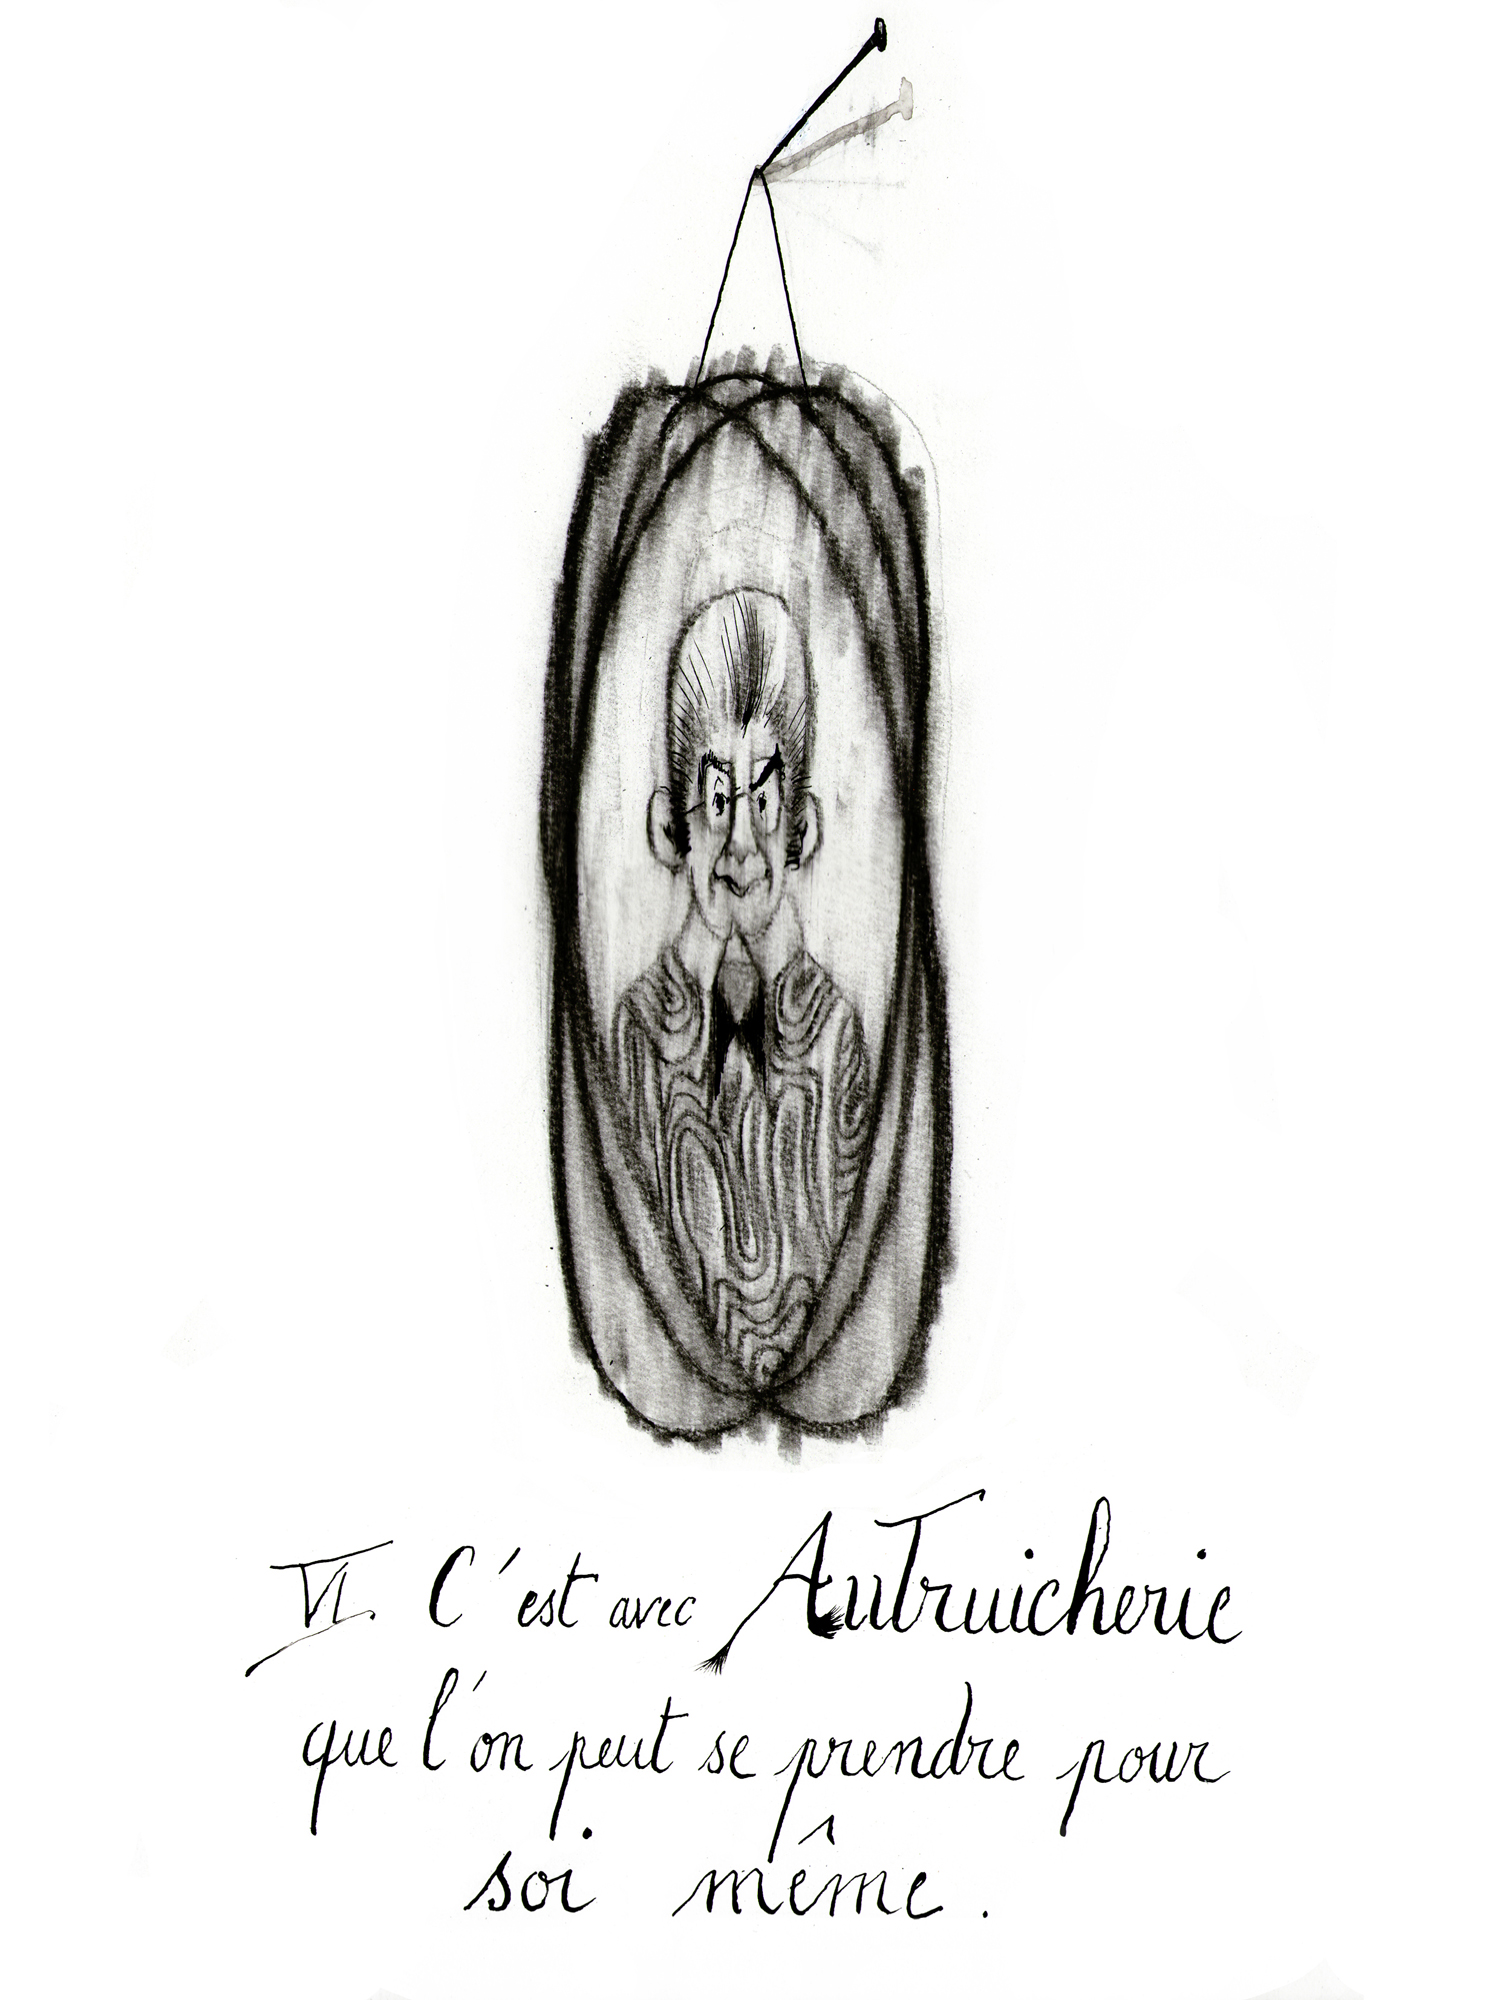 VI. C'est avec Autruicherie
que l'on peut se prendre pour
soi même.